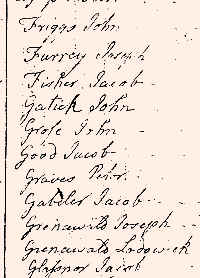 Friggs John
Furrey Joseph
Fisher Jacob
Gatick John
Grose John
Good Jacob
Graves Peter
Gabeler Jacob
Grenawald Joseph
Grenawald Lodowick
Glassner Jacob